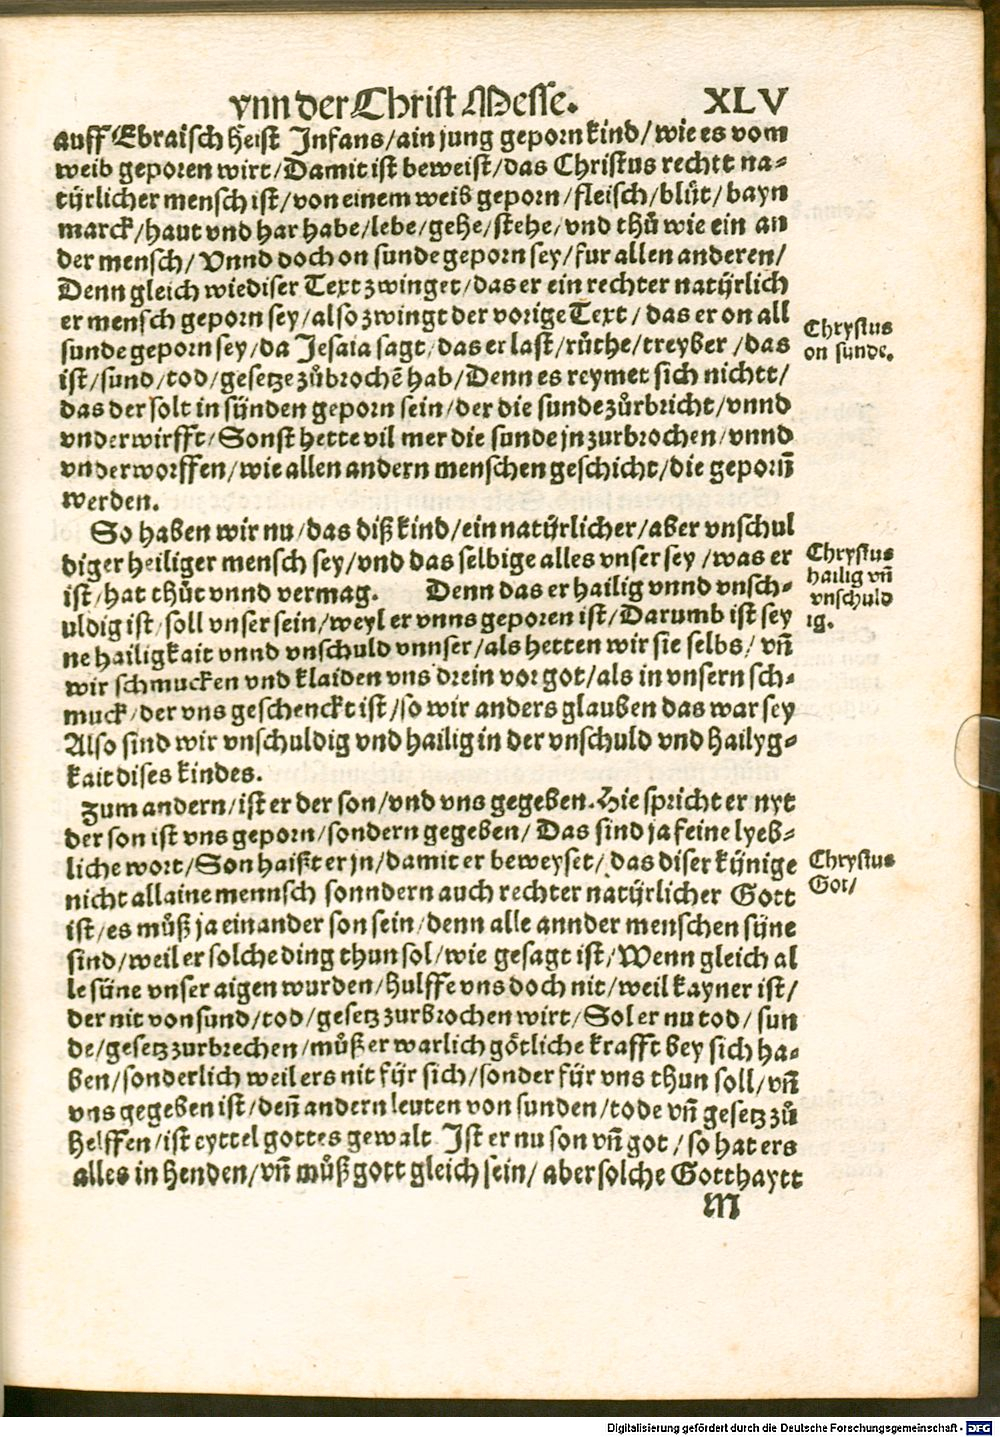 vnn der Christ Messe. XLV
auff Ebraisch heist Infans/ain jung geporn kind/wie es vom
weib geporen wirt/Damit ist beweist/das Christus rechtt na-
tÿrlicher mensch ist/von einem weib geporn/fleisch/blůt/bayn
marck/haut vnd har habe/lebe/gehe/stehe/vnd thů wie ein an
der mensch/Vnnd doch on sunde geporn sey/fur allen anderen/
Denn gleich wie diser Text zwinget/das er ein rechter natÿrlich
er mensch geporn sey/also zwingt der vorige Text/das er on all
sunde geporn sey/da Jesaia sagt/das er last/růthe/treyber/das
ist/sund/tod/gesetze zůbrochē hab/Denn es reymet sich nichtt/
das der solt in sünden geporn sein/der die sunde zůrbricht/vnnd
vnderwirfft/Sonst hette vil mer die sunde jn zurbrochen/vnnd
vnderworffen/wie allen andern menschen geschicht/die geporn̄
werden.
Chrystus
on sunde.
So haben wir nu/das diß kind/ein natÿrlicher/aber vnschul
diger heiliger mensch sey/vnd das selbige alles vnser sey/was er
ist/hat thůt vnnd vermag. Denn das er hailig vnnd vnsch-
uldig ist/soll vnser sein/weyl er vnns geporen ist/Darumb ist sey
ne hailigkait vnnd vnschuld vnnser/als hetten wir sie selbs/vn̄
wir schmucken vnd klaiden vns drein vor got/als in vnsern sch-
muck/der vns geschenckt ist/so wir anders glauben das war sey
Also sind wir vnschuldig vnd hailig in der vnschuld vnd hailyg-
kait dises kindes.
Chrystus
hailig vn̄
vnschuld
ig.
Zum andern/ist er der son/vnd vns gegeben. Hie spricht er nyt
der son ist vns geporn/sondern gegeben/Das sind ja feine lyeb-
liche wort/Son haißt er jn/damit er beweyset/das diser kÿnige
nicht allaine mennsch sonndern auch rechter natÿrlicher Gott
ist/es můß ja ein ander son sein/denn alle annder menschen süne
sind/weil er solche ding thun sol/wie gesagt ist/Wenn gleich al
le süne vnser aigen wurden/hulffe vns doch nit/weil kayner ist/
der nit von sund/tod/gesetz zurbrochen wirt/Sol er nu tod/sun
de/gesetz zurbrechen/můß er warlich götliche krafft bey sich ha-
ben/sonderlich weil ers nit fÿr sich/sonder fÿr vns thun soll/vn̄
vns gegeben ist/den̄ andern leuten von sunden/tode vn̄ gesetz zů
helffen/ist eyttel gottes gewalt Ist er nu son vn̄ got/so hat ers
alles in henden/vn̄ můß gott gleich sein/aber solche Gotthaytt
Chrystus
Got/
M
Digitalisierung gefördert durch die Deutsche Forschungsgemeinschaft - DFG